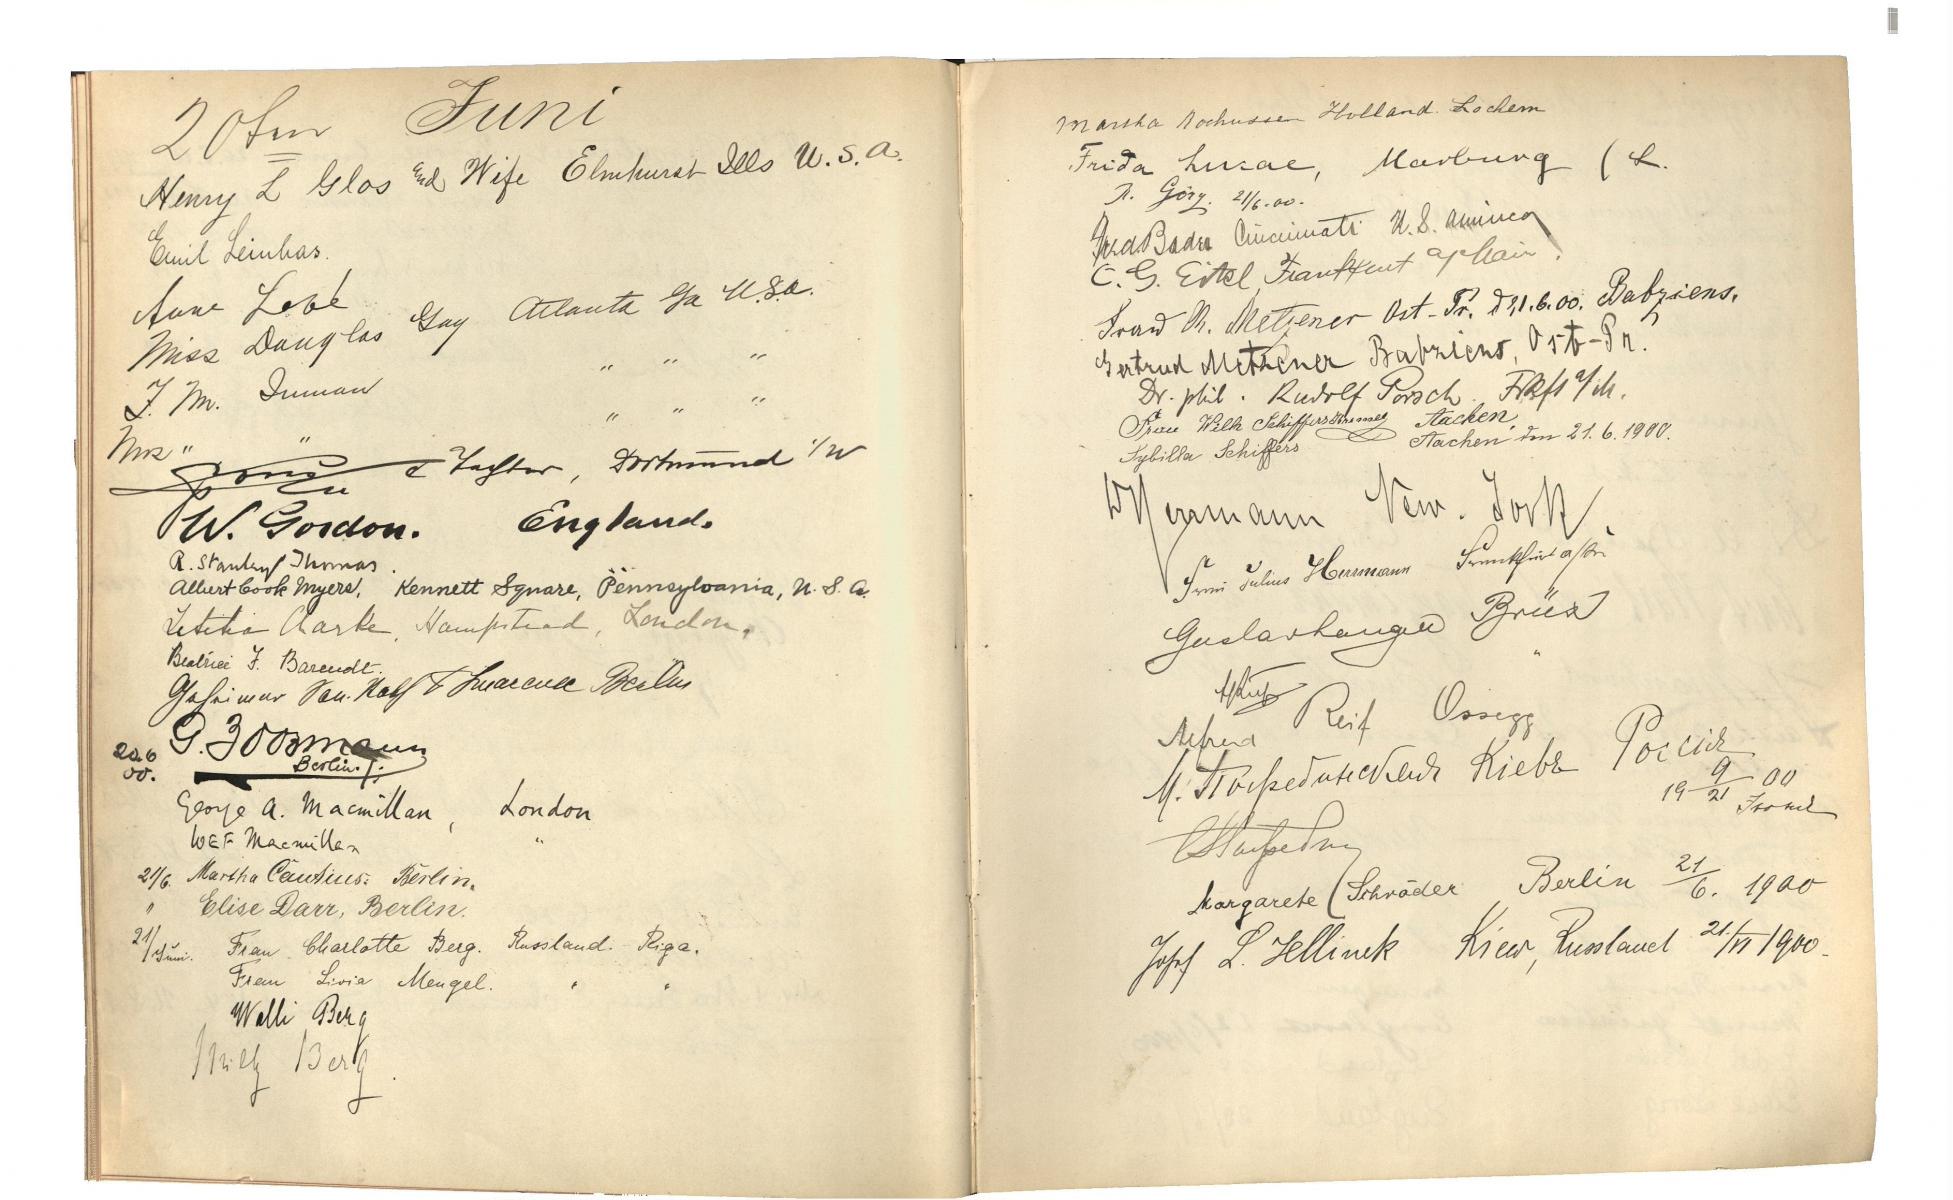 20ten Juni
Henry L Glos and Wife Elmhurst Ills U.S.A.
Emil Leinhas.
Anne Lobé
Miss Douglas Gay Atlanta Ga U.S.A.
F. M. Inman " " "
Mrs " " " " "
& Tochter, Dortmund i/W
W. Gordon. England.
R. Stanley Thomas.
Albert Cook Myers, Kennett Square, Pennsylvania, U.S.A.
Letitia Clarke, Hampstead, London.
Beatrice F. Barendt.
Berlin
G. Zoozmann
20.6 00. Berlin.
George A. Macmillan, London
W E F Macmillan "
21/6. Martha Cautius. Berlin.
" Elise Darr, Berlin.
21/Juni. Frau Charlotte Berg. Russland. Riga.
Frau Livia Mengel. " "
Walli Berg
Milly Berg.
Martha Rochussen Holland. Lochem
Frida Lucae, Marburg (L.
R. Görg. 21/6.00.
Fred Bader Cincinnati U.S. America
C. G. Eitel, Frankfurt a/Main.
Frau M. Metzener Ost-Pr. d 21.6.00. Babziens.
Gertrud Metzener Babziens, Ost-Pr.
Dr. phil. Rudolf Porsch. Frkft a/M.
Frau Wilh Schiffers Aachen
Sybilla Schiffers Aachen den 21.6.1900.
W Herrmann New. York.
Frau Julius Herrmann Frankfurt a/M
Brüx
Alfred Reif Ossegg
М. Кіевъ Россія
19 9/21 00
Margarete Schröder Berlin 21/6. 1900
Josef L. Jellinek Kiew, Russland 21./VI 1900.